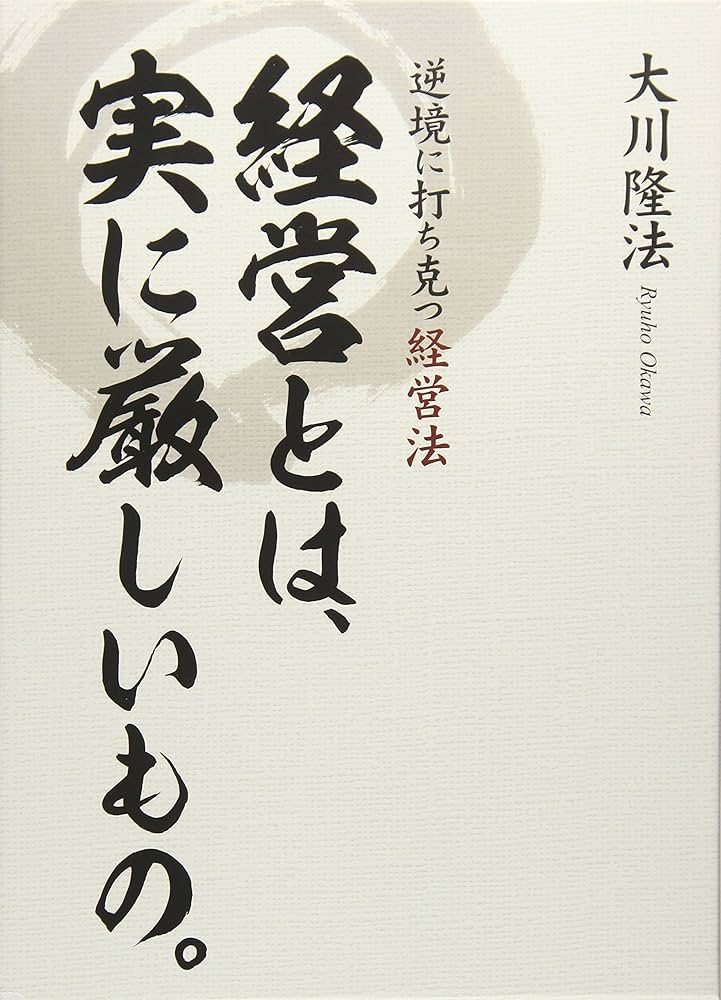 大川隆法
Ryuho Okawa
逆境に打ち克つ経営法
経営とは、
実に厳しいもの。